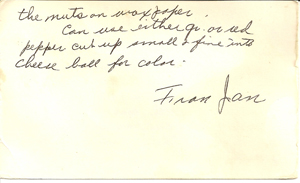 the nuts on wax paper.
Can use either gr. or red
pepper cut up small & fine into
cheese ball for color.
Fran Jan